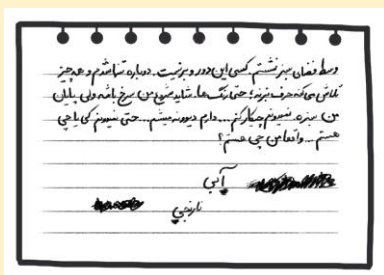 وسط فضای سبز نشستم. کسی این دور و بر نیست. دوباره تنها شدم و همه چیز
تلاش می‌کنه حرف بزنه؛ حتی رنگ‌ها. شاید شروع من سرخ باشه ولی پایان
من سبزه. نمیدونم چیکار کنم... دارم دیوونه میشم... حتی نمیدونم کی یا چی
هستم... واقعا من چی هستم؟
آبی
نارنجی